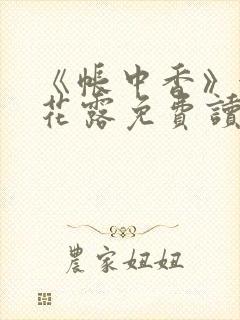 《帳中香》
花露免費讀
農家妞妞